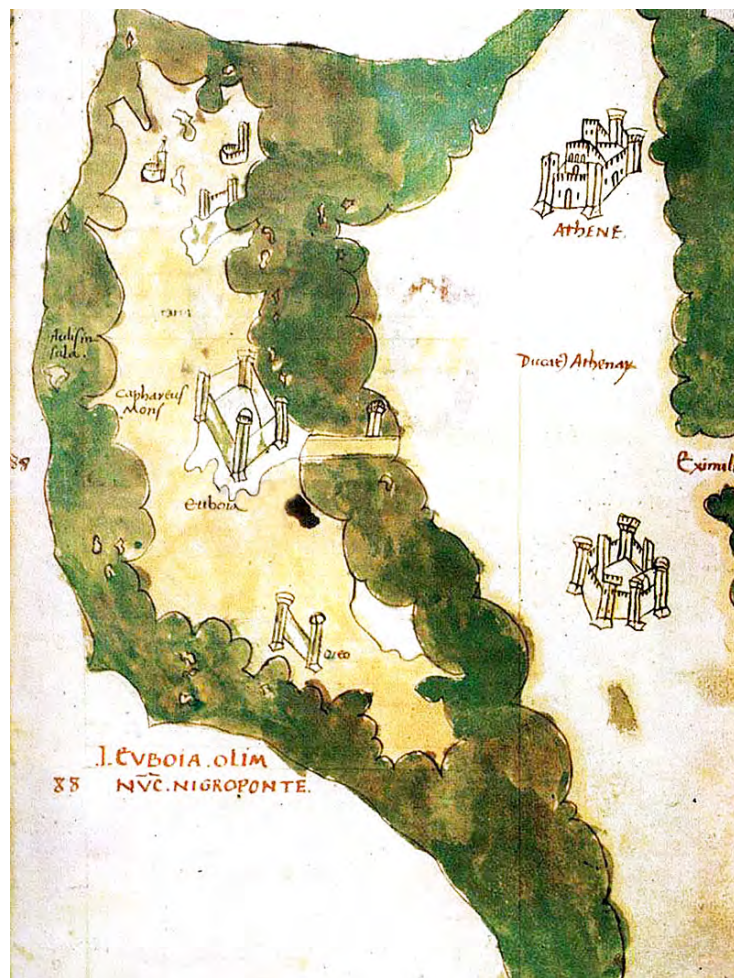 AThENE.
Aulis in
sula.
Caphareus
Mons
Eximil
88
Euboia
Oreo
.I. EVBOIA. OLIM
88 NVC̄. NIGROPONTE.